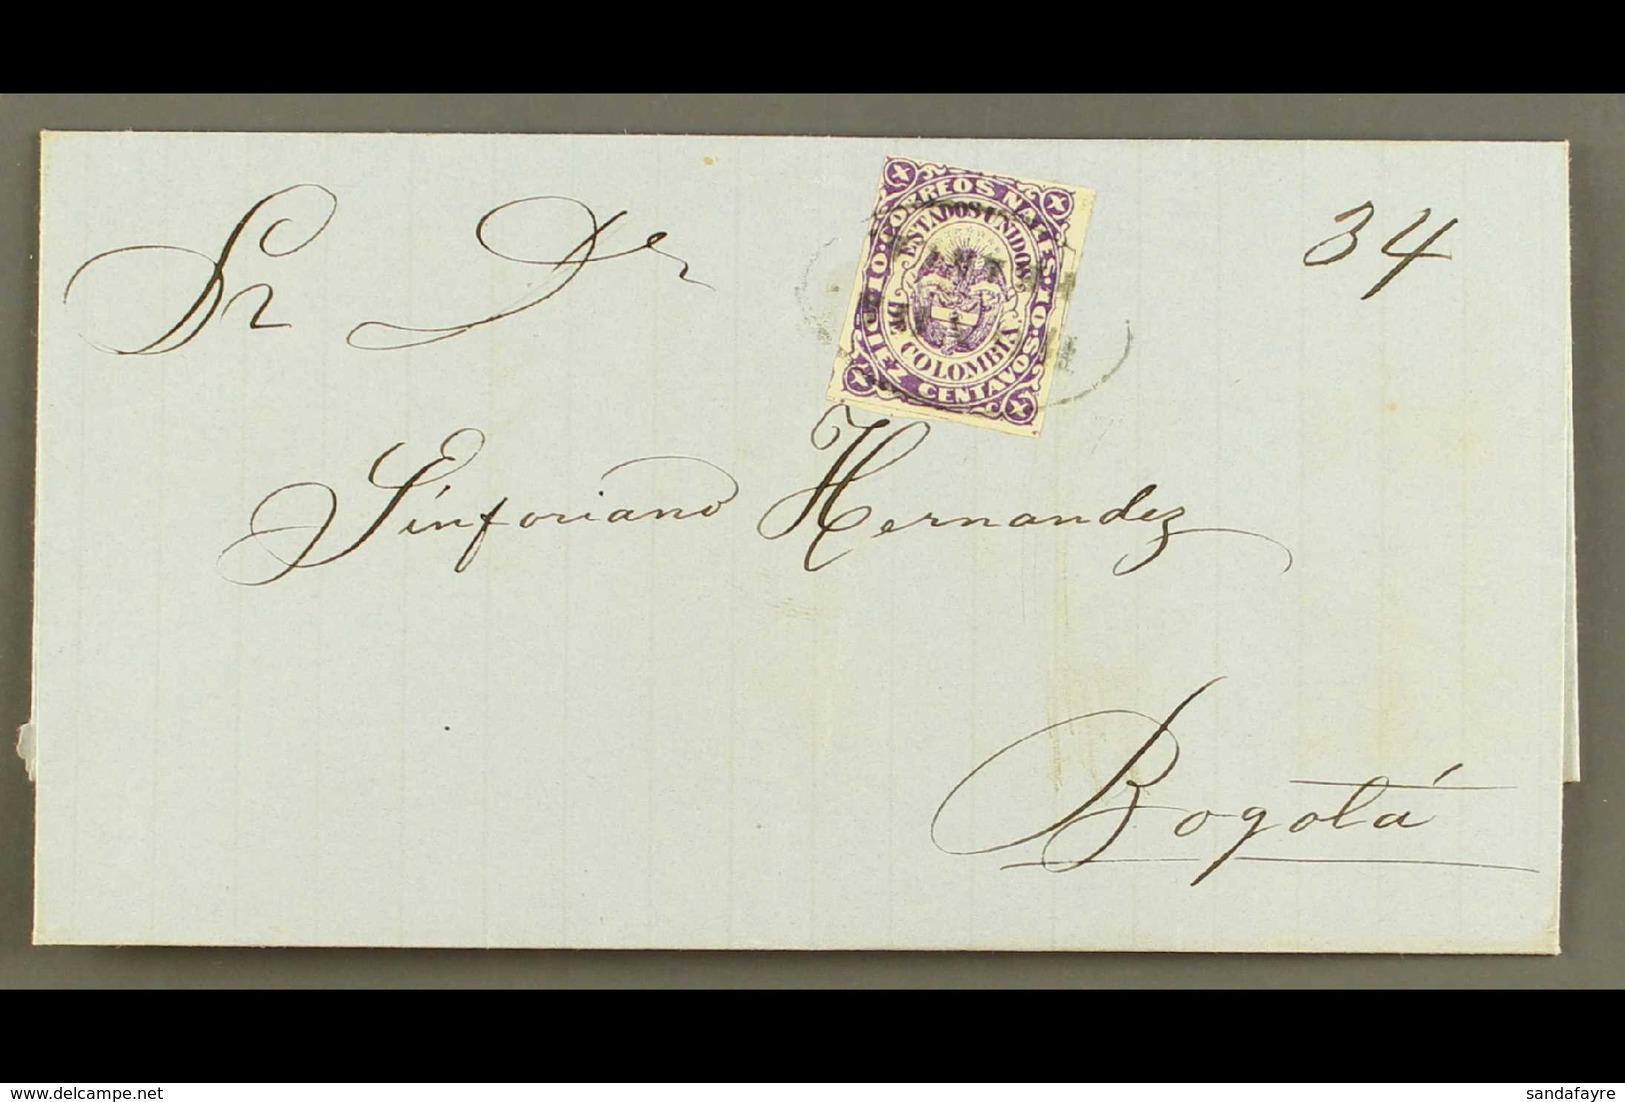 Sr Dr
34
CORREOS NALES
10
10
DIEZ CENTAVOS
ESTADOS UNIDOS
DE COLOMBIA
Sinforiano Hernandez
Bogotá
delcampe.net
sandafayre